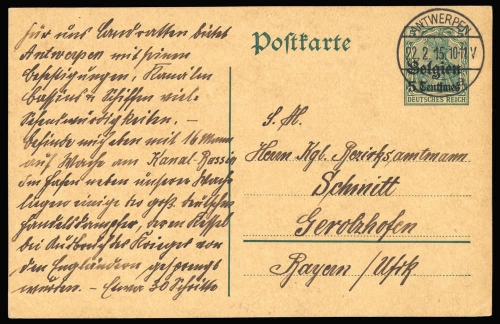 Für uns Landratten bietet
Antwerpen mit seinen
Befestigungen, Kanälen
Bassins u. Schiffen viele
Sehenswürdigkeiten. –
Befinde mich eben mit 16 Mann
auf Wache am Kanal-Bassin
Im Hafen neben unserer Wache
liegen einige der groß. deutschen
Handelsdampfer, deren Kessel
bei Ausbruch des Krieges von
den Engländern gesprengt
wurden. – Etwa 30 Schritte
Postkarte
ANTWERPEN
22.2.15. 10-11 V
Belgien
5 Centimes
DEUTSCHES REICH
S. H.
Herrn Kgl. Bezirksamtmann
Schmitt
Gerolzhofen
Bayern / Ufrk